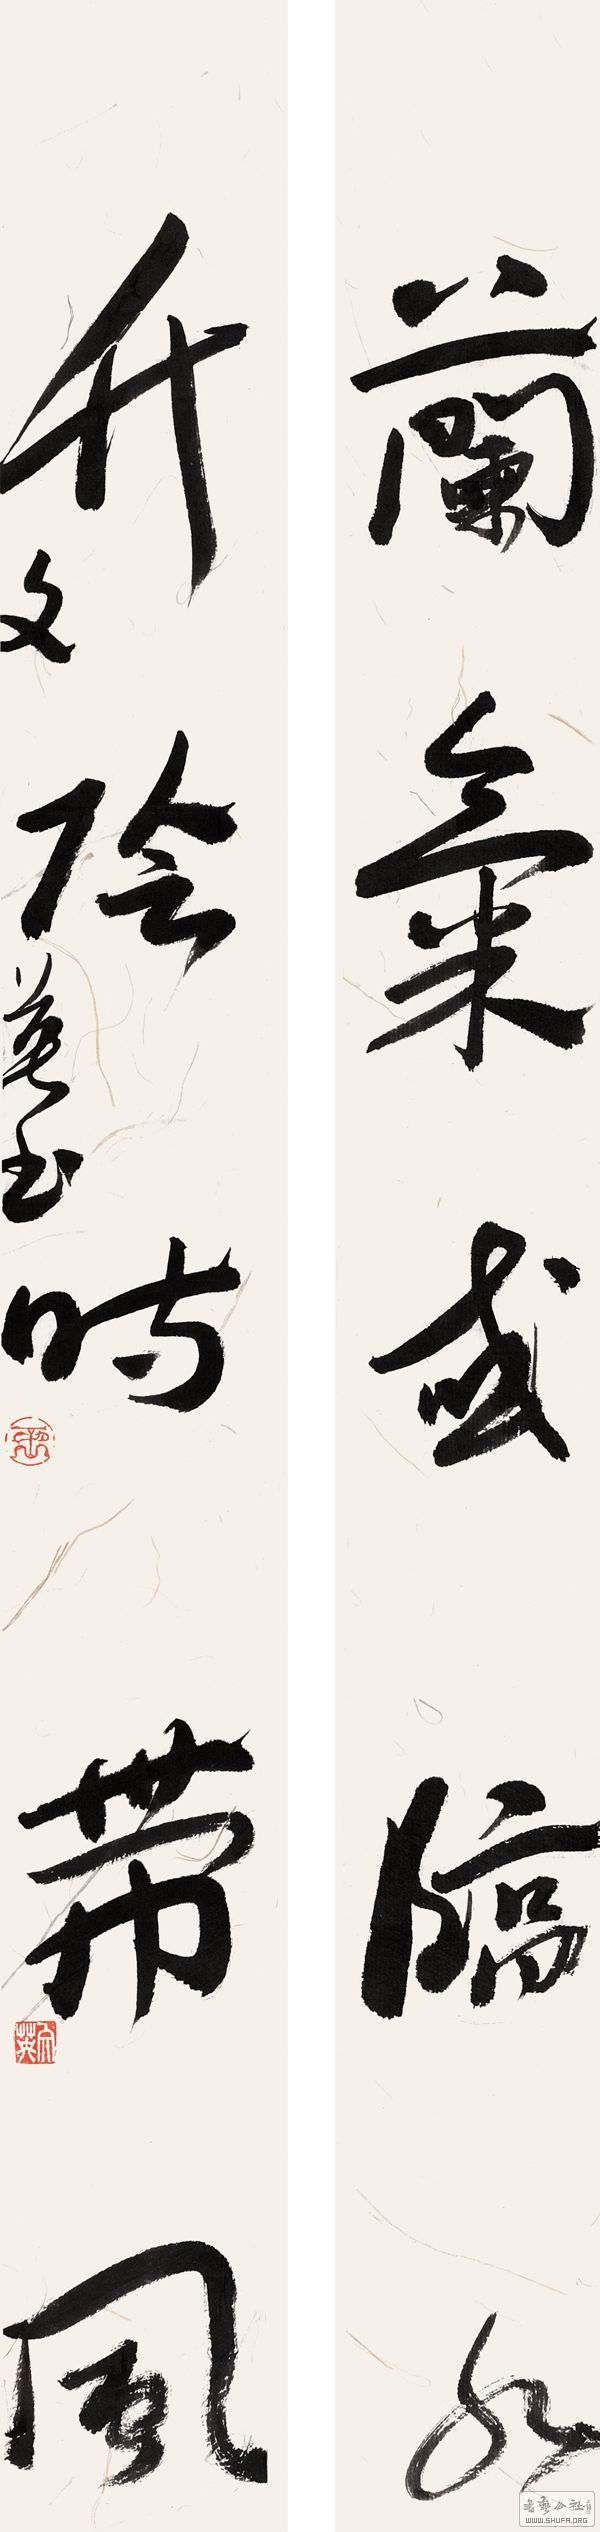 蘭氣或臨水
竹陰時帶風
文英書
文英
書藝公社
WWW.SHUFA.ORG